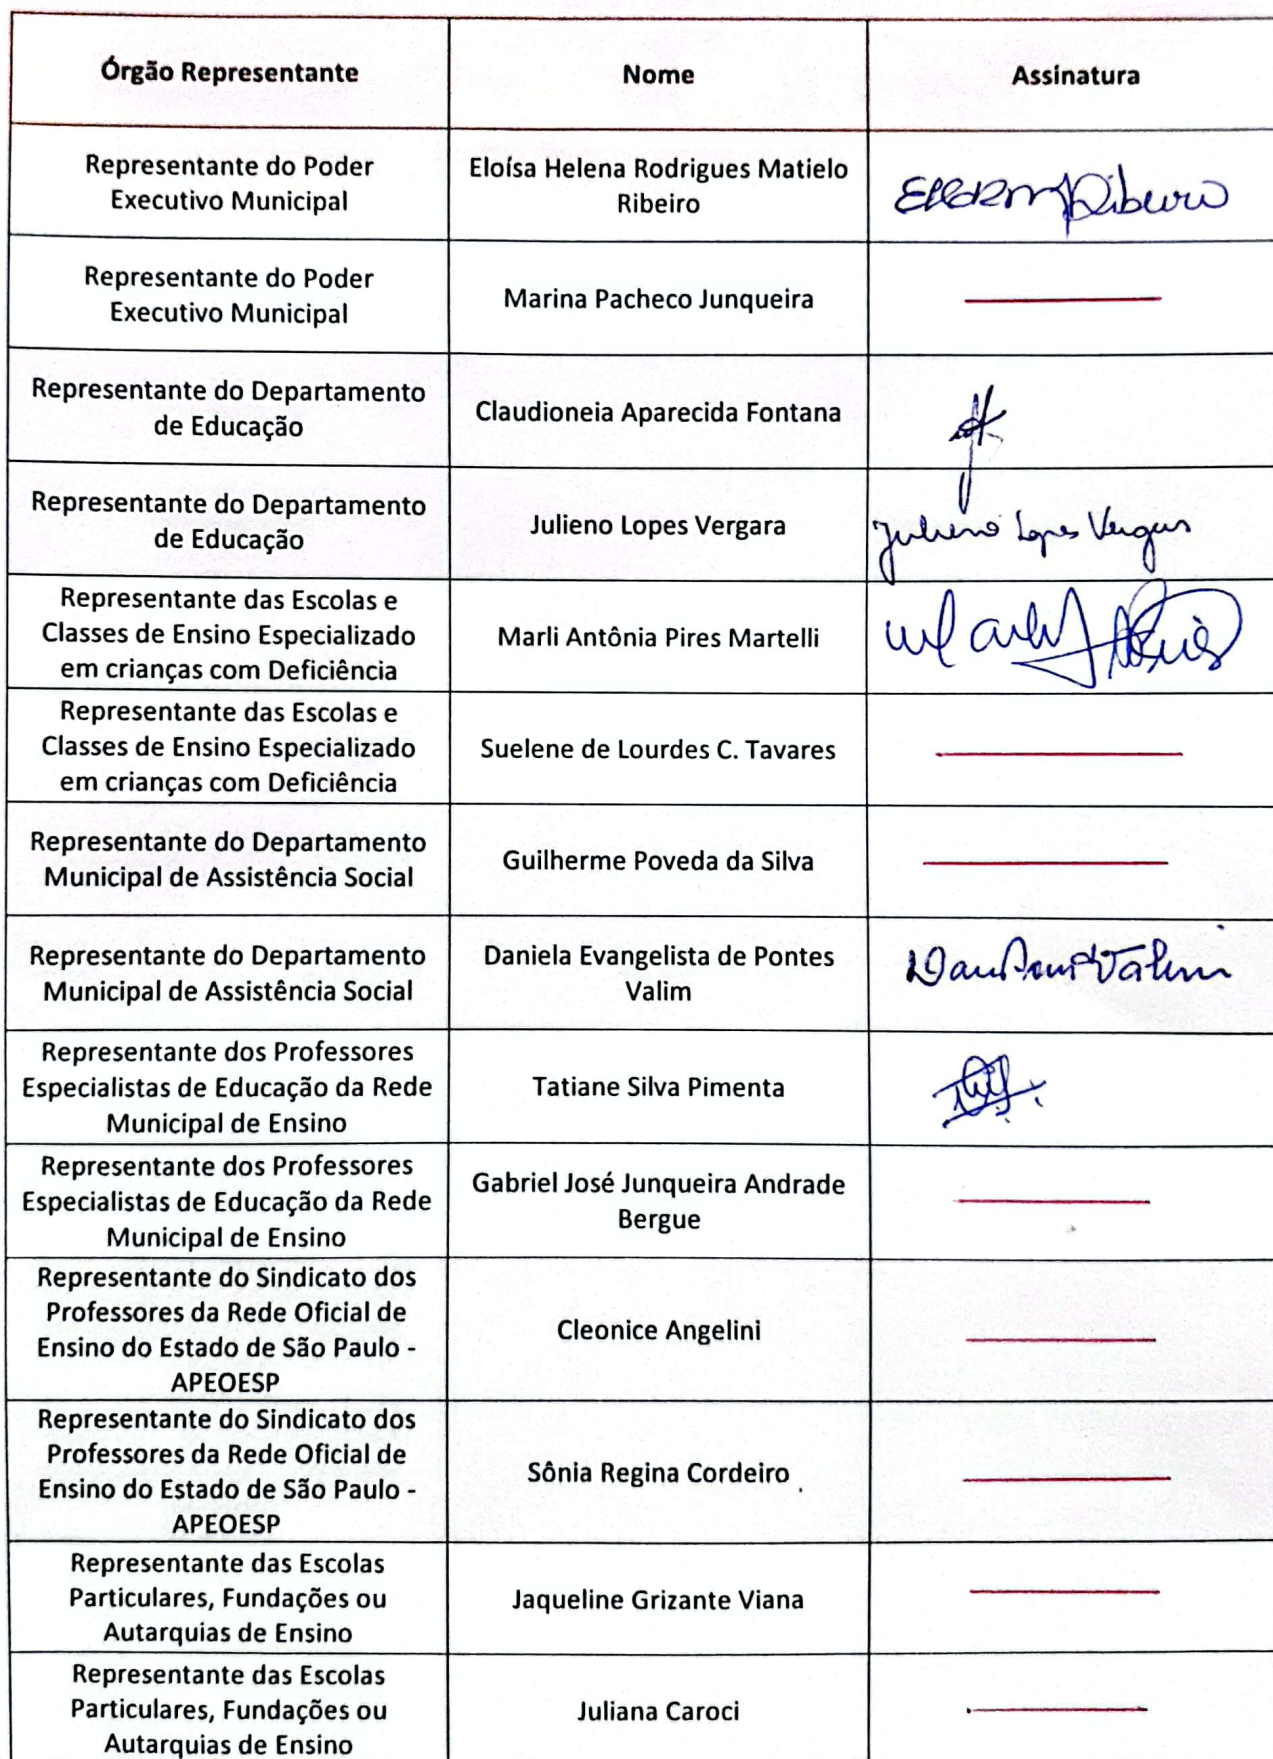 Órgão Representante
Nome
Assinatura
Representante do Poder
Executivo Municipal
Eloísa Helena Rodrigues Matielo
Ribeiro
Ribeiro
Representante do Poder
Executivo Municipal
Marina Pacheco Junqueira
Representante do Departamento
de Educação
Claudioneia Aparecida Fontana
Representante do Departamento
de Educação
Julieno Lopes Vergara
Julieno Lopes Vergara
Representante das Escolas e
Classes de Ensino Especializado
em crianças com Deficiência
Marli Antônia Pires Martelli
Representante das Escolas e
Classes de Ensino Especializado
em crianças com Deficiência
Suelene de Lourdes C. Tavares
Representante do Departamento
Municipal de Assistência Social
Guilherme Poveda da Silva
Representante do Departamento
Municipal de Assistência Social
Daniela Evangelista de Pontes
Valim
Valim
Representante dos Professores
Especialistas de Educação da Rede
Municipal de Ensino
Tatiane Silva Pimenta
Representante dos Professores
Especialistas de Educação da Rede
Municipal de Ensino
Gabriel José Junqueira Andrade
Bergue
Representante do Sindicato dos
Professores da Rede Oficial de
Ensino do Estado de São Paulo -
APEOESP
Cleonice Angelini
Representante do Sindicato dos
Professores da Rede Oficial de
Ensino do Estado de São Paulo -
APEOESP
Sônia Regina Cordeiro
Representante das Escolas
Particulares, Fundações ou
Autarquias de Ensino
Jaqueline Grizante Viana
Representante das Escolas
Particulares, Fundações ou
Autarquias de Ensino
Juliana Caroci